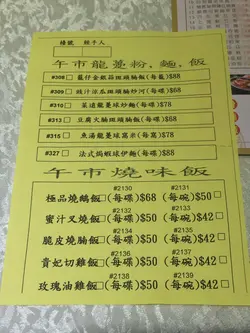 檯號 經手人
午市龍躉粉，麵，飯
#309 □ 籠仔金銀蒜斑頭腩飯(每籠)$88
#310 □ 豉汁涼瓜斑頭腩炒河(每碟)$78
#310 □ 菜遠龍躉球炒麵(每碟)$78
#313 □ 豆腐火腩斑頭腩飯(每碟)$78
#315 □ 魚湯龍躉球窩米(每窩)$78
#327 □ 法式焗蝦球伊麵(每碟)$88
午市燒味飯
#2130 #2131
極品燒鵝飯□(每碟)$68 (每碗)$50□
#2132 #2133
蜜汁叉燒飯□(每碟)$50 (每碗)$42□
#2134 #2135
脆皮燒腩飯□(每碟)$50 (每碗)$42□
#2136 #2137
貴妃切雞飯□(每碟)$50 (每碗)$42□
#2138 #2139
玫瑰油雞飯□(每碟)$50 (每碗)$42□